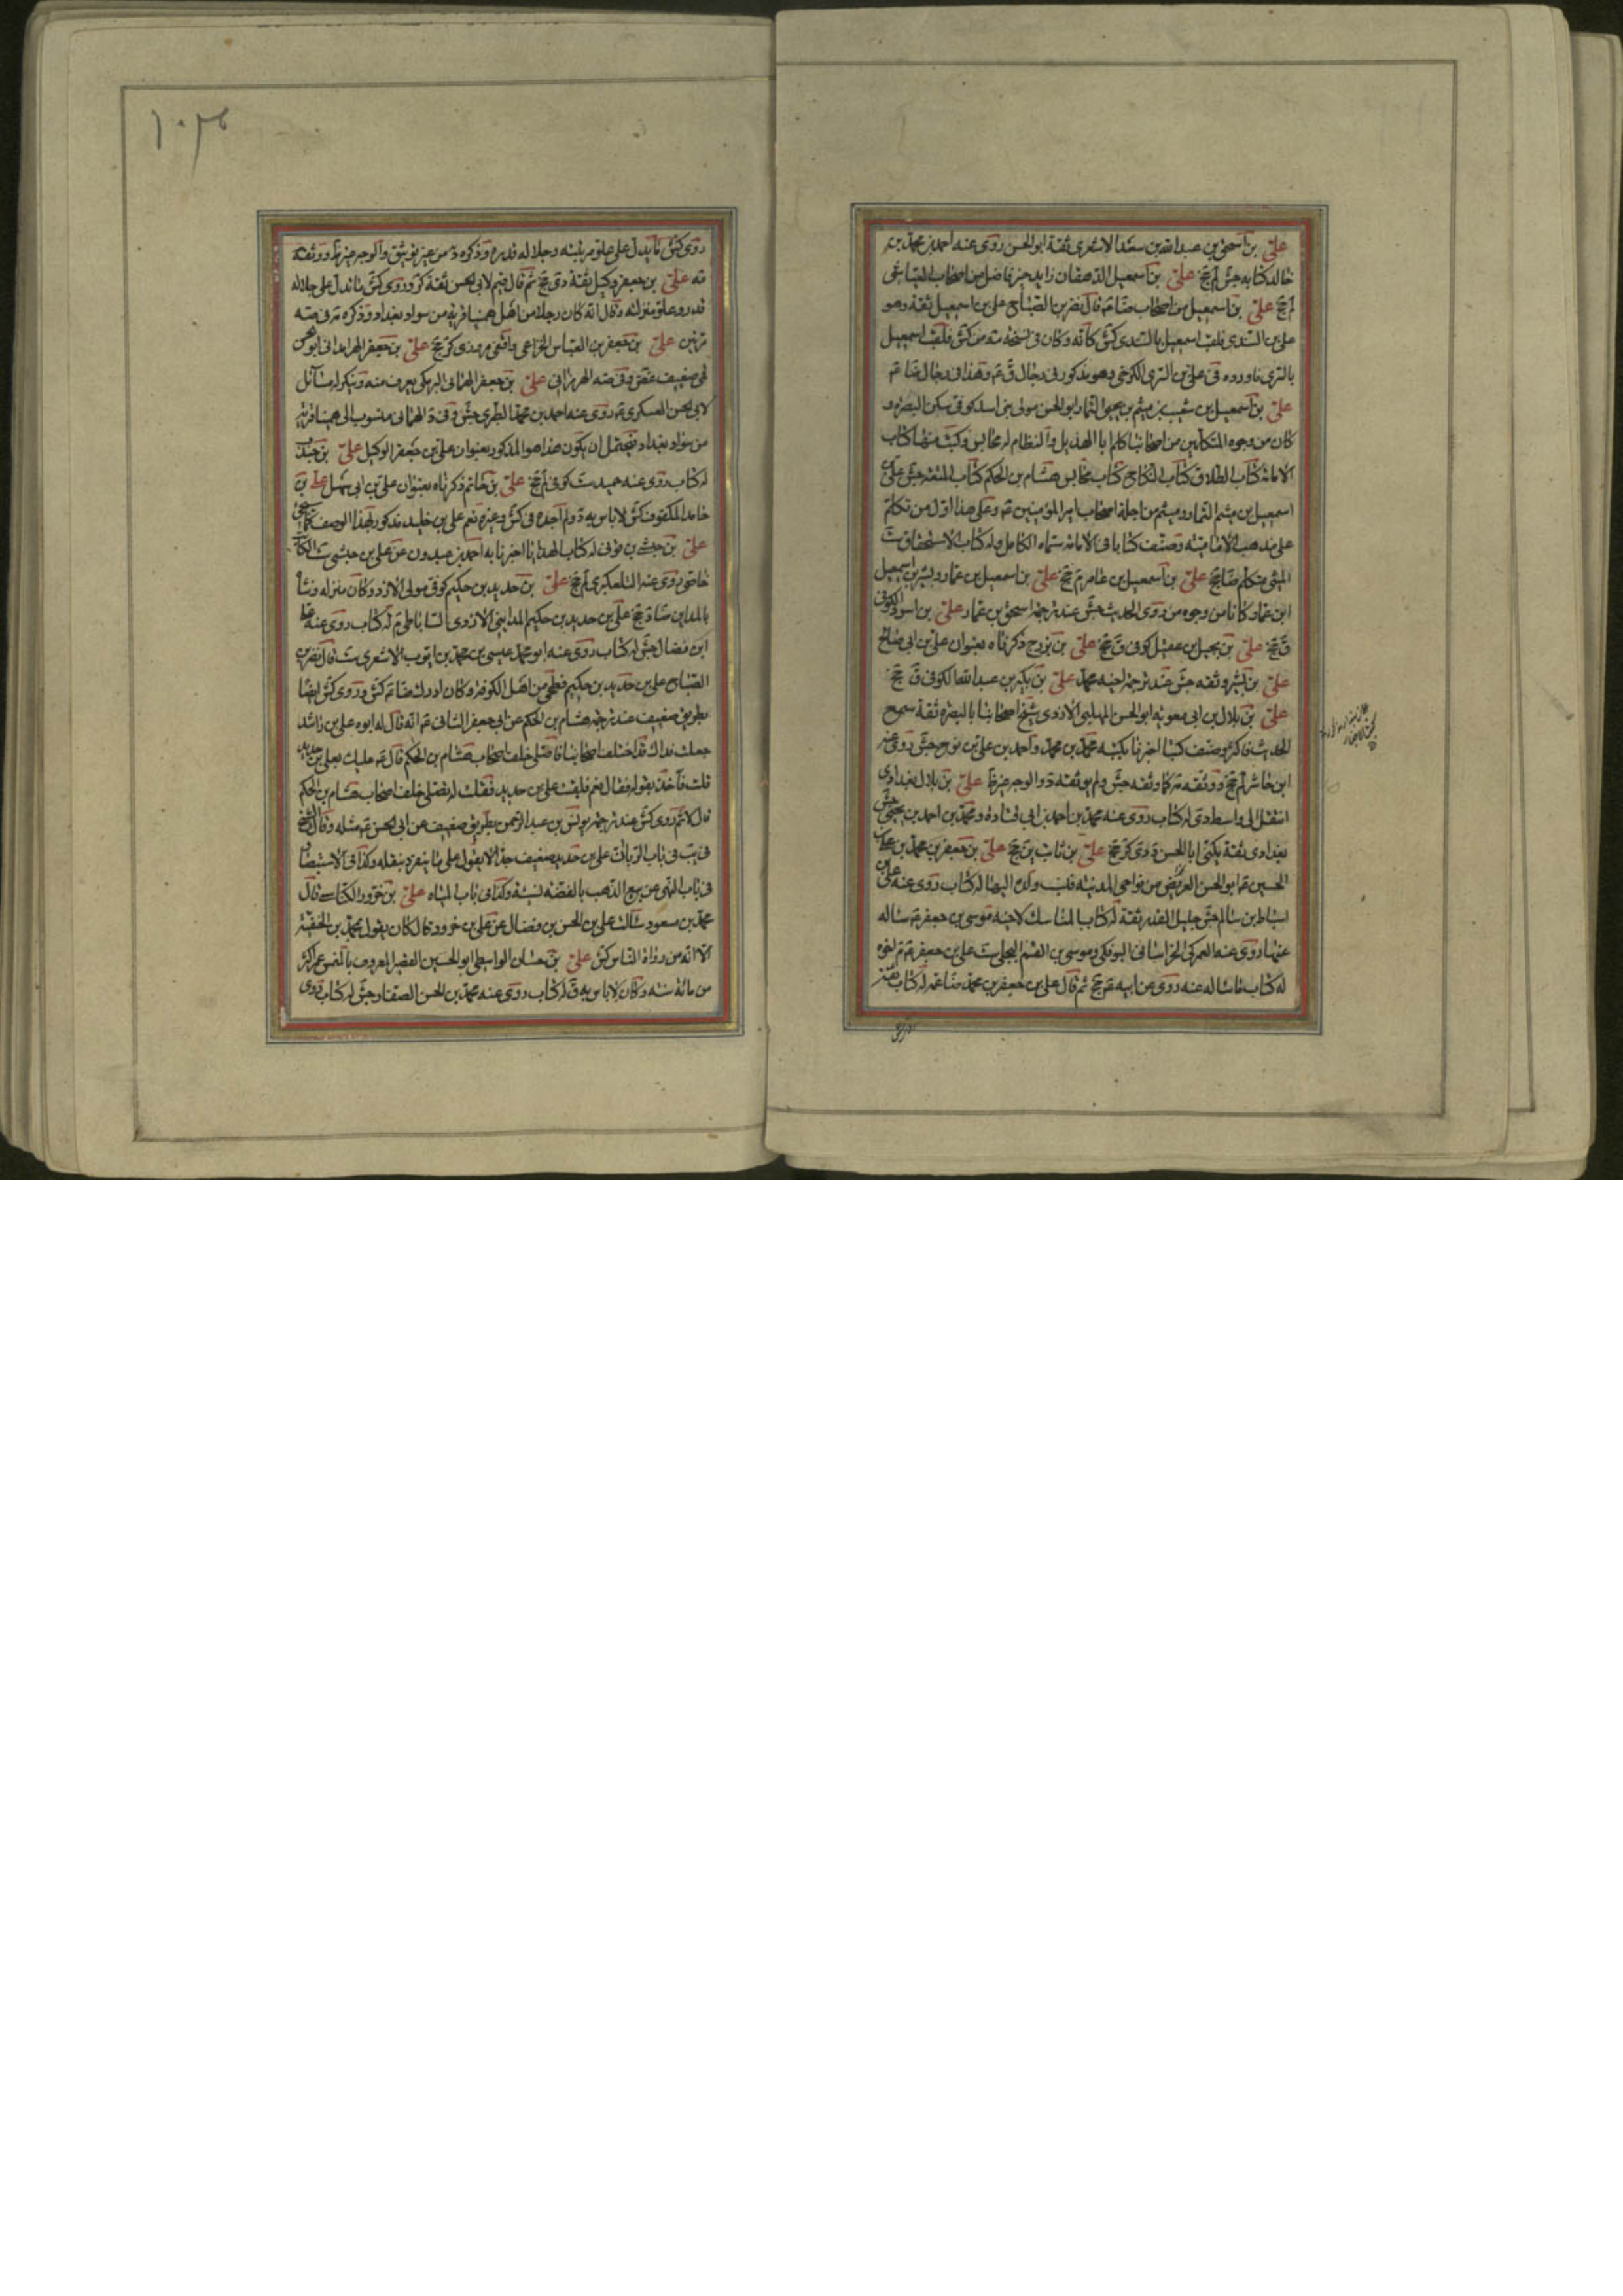 علىّ بن اسحق بن عبدالله بن سعد الاشعرى ثقة ابو الحسن روى عنه احمد بن محمد بن
خالد كتابه جش لم جخ علىّ بن اسمعيل الدهقان زاهد خير فاضل من اصحاب العياشى
لم جخ علىّ بن اسمعيل من اصحاب ضا قال نصر بن الصباح على بن اسمعيل ثقة وهو
على بن السندى فلقب اسمعيل بالسندى كش كانه وكان فى نسخة مه من كش فلقب اسمعيل
بالسرى فاورده فى على بن السرى الكرخى وهو مذكور فى رجال ق م وهذا فى رجال ضا م
علىّ بن اسمعيل بن شعيب بن ميثم بن يحيى التمار ابو الحسن مولى بنى اسد كوفى سكن البصرة و
كان من وجوه المتكلمين من اصحابنا كلم ابا الهذيل والنظام له مجالس وكتب منها كتاب
الامامة كتاب الطلاق كتاب النكاح كتاب مجالس هشام بن الحكم كتاب المتعة جش على بن
اسمعيل بن ميثم التمار وميثم من اجلة اصحاب امير المؤمنين م وعلى هذا اول من تكلم
على مذهب الامامية وصنف كتابا فى الامامة سماه الكامل وله كتاب الاستحقاق ست
الميثمى متكلم ضا جخ علىّ بن اسمعيل بن عامر م جخ علىّ بن اسمعيل بن عمار وبشر بن اسمعيل
ابن عمار كانا من وجوه من روى الحديث جش عند ترجمة اسحق بن عمار علىّ بن اسود الكوفى
ق جخ علىّ بن بجيل بن عقيل كوفى ق جخ علىّ بن بزرج ذكرناه بعنوان على بن ابى صالح
علىّ بن بشر وثقه جش عند ترجمة اخيه محمد علىّ بن بكير بن عبدالله الكوفى ق جخ
علىّ بن بلال بن ابى معوية ابو الحسن المهلبى الازدى شيخ اصحابنا بالبصرة ثقة سمع
الحديث فاكثر وصنف كتبا اخبرنا بكتبه محمد بن محمد واحمد بن على بن نوح جش روى عنه
ابن حاشر لم جخ ووثقه مه كما وثقه جش ولم يوثقه د والوجه خير ما علىّ بن بلال بغدادى
انتقل الى واسط دى له كتاب روى عنه محمد بن احمد بن ابى قتادة ومحمد بن احمد بن يحيى جش
بغدادى ثقة يكنى ابا الحسن د دى كر جخ علىّ بن ثابت ين جخ علىّ بن جعفر بن محمد بن على بن
الحسين م ابو الحسن العريض من نواحى المدينة فنسب ولده اليها له كتاب روى عنه على بن
اسباط بن سالم جش جليل القدر ثقة له كتاب المناسك لاخيه موسى بن جعفر م ساله
عنها روى عنه العمركى الخراسانى البوفكى وموسى بن القسم البجلى ست على بن جعفر م م اخوه
له كتاب ما ساله عنه روى عن ابيه م جخ ثم قال على بن جعفر بن محمد ضا عمه له كتاب ثقة
١٠٣٤
روى كش ما يدل على علو مرتبته وجلالة قدره وذكره د من غير توثيق والوجه ووثقه
مه علىّ بن جعفر وكيل ثقة دى جخ ثم قال قيم لابى الحسن ثقة كر وروى كش ما يدل على جلالة
قدره وعلو منزلته وقال انه كان رجلا من اهل همينا قرية من سواد بغداد وذكره مه فى صه
مرتين علىّ بن جعفر بن العباس الخزاعى واقفى مروزى كر جخ علىّ بن جعفر الهرمدانى ابو الحسن
ضعيف غض وفى صه الهرمزانى علىّ بن جعفر الهمانى البرمكى يعرف منه وينكر له مسائل
لابى الحسن العسكرى م روى عنه احمد بن محمد الطبرى جش وفى د الهمانى منسوب الى همينا قرية
من سواد بغداد فيحتمل ان يكون هذا هو المذكور بعنوان على بن جعفر الوكيل علىّ بن جندب
له كتاب روى عنه حميد ست كوفى لم جخ علىّ بن حاتم ذكرناه بعنوان على بن ابى سهل علىّ بن
حامد المكفوف كش لا باس به د ولم اجده فى كش وغيره نعم على بن خليد مذكور بهذا الوصف كما سيجئ
علىّ بن حبشى بن قونى له كتاب الهدايا اخبرنا به احمد بن عبدون عن على بن حبشى ست الكاتب
خاصى روى عنه التلعكبرى لم جخ علىّ بن حديد بن حكيم كوفى مولى الازد وكان منزله ونشأ
بالمداين ضا د جخ على بن حديد بن حكيم المداينى الازدى الساباطى م له كتاب روى عنه على
ابن فضال جش له كتاب روى عنه ابو محمد عيسى بن محمد بن ايوب الاشعرى ست قال نصر بن
الصباح على بن حديد بن حكيم فطحى من اهل الكوفة وكان ادرك ضا م كش وروى كش ايضا
بطريق ضعيف عند ترجمة هشام بن الحكم عن ابى جعفر الثانى م انه قال له ابوه على بن راشد
جعلت فداك قد اختلف اصحابنا فاصلى خلف اصحاب هشام بن الحكم قال م عليك بعلى بن حديد
قلت فآخذ بقوله فقال نعم فلقيت على بن حديد فقلت له نصلى خلف اصحاب هشام بن الحكم
قال لا ثم روى كش عند ترجمة يونس بن عبد الرحمن بطريق ضعيف عن ابى الحسن م مثله وقال الشيخ
فى يب فى باب الربات على بن حديد ضعيف جدا لا يعول على ما ينفرد بنقله وكذا فى الاستبصار
فى باب النهى عن بيع الذهب بالفضة نسية وكذا فى باب المياه علىّ بن حزور الكناسى قال
محمد بن مسعود سالت على بن الحسن بن فضال عن على بن حزور قال كان يقول بمحمد بن الحنفية
الا انه من رواة الناس كش علىّ بن حسان الواسطى ابو الحسين القصير المعروف بالمنمس عمر اكثر
من مائة سنة وكان لا باس به ق له كتاب روى عنه محمد بن الحسن الصفار جش له كتاب روى